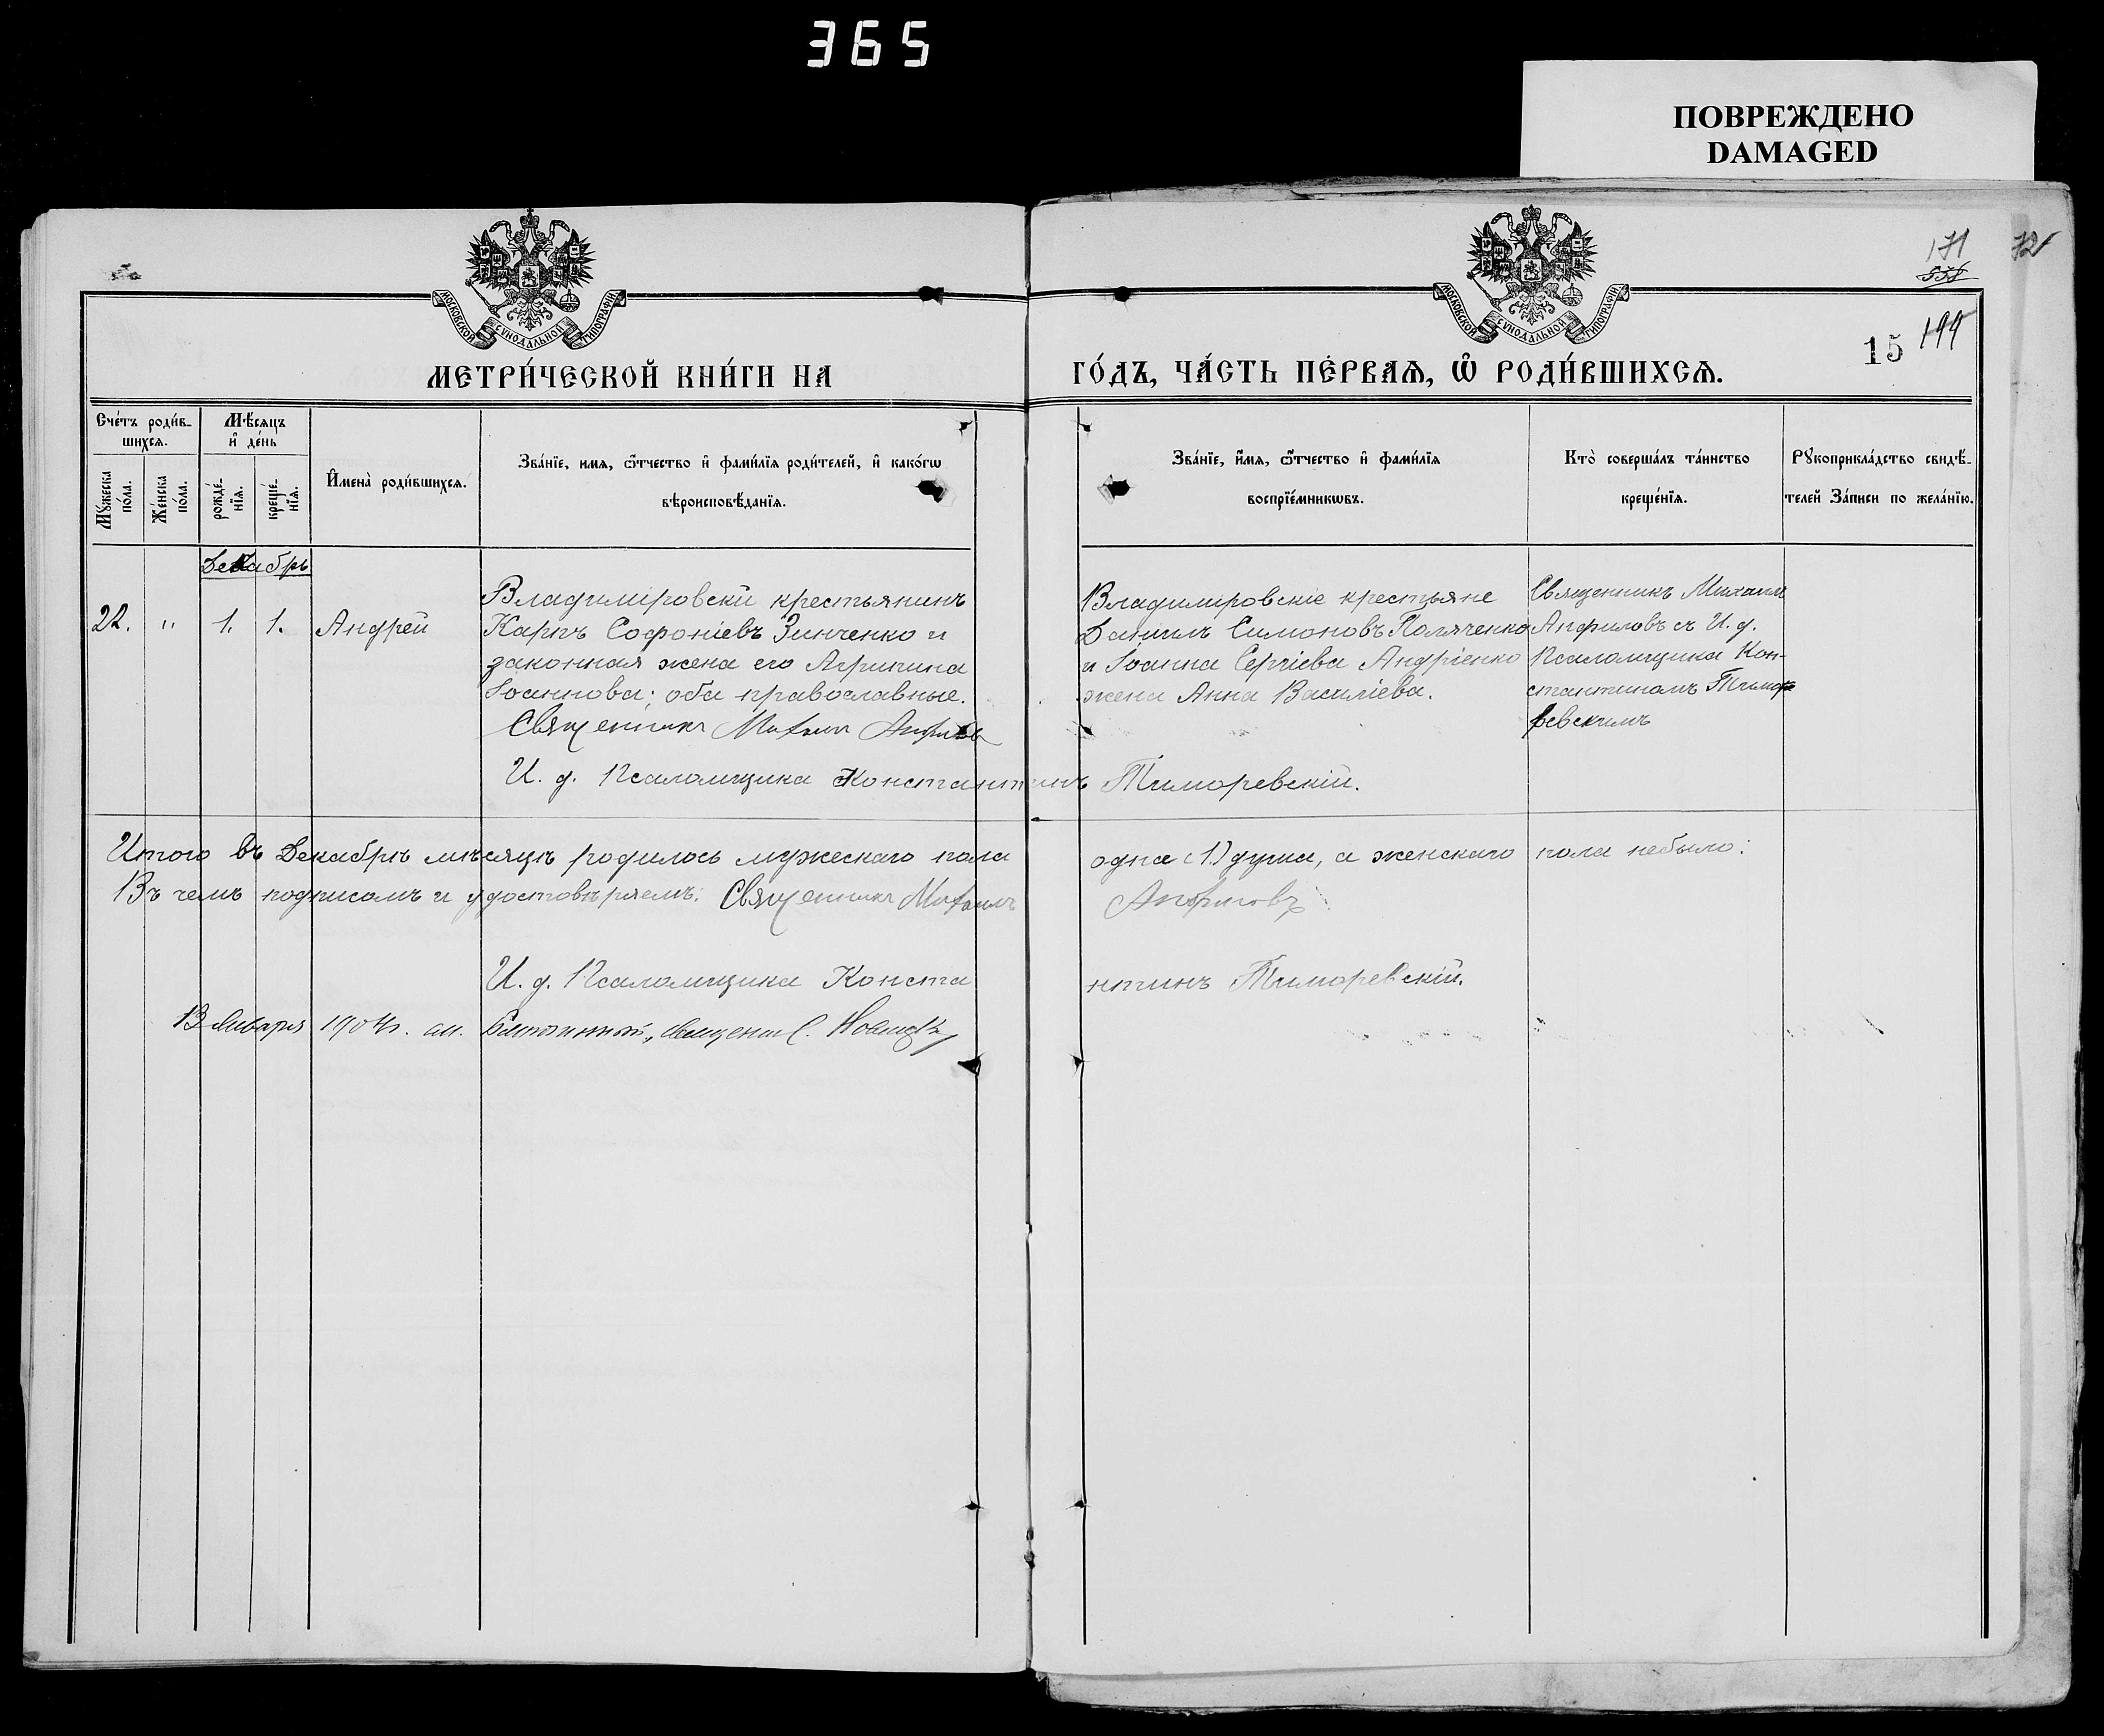 365
ПОВРЕЖДЕНО
DAMAGED
171
72
МОСКОВСКОЙ СѴНОДАЛЬНОЙ ТИПОГРАФІИ
МОСКОВСКОЙ СѴНОДАЛЬНОЙ ТИПОГРАФІИ
15 199
МЕТРИ́ЧЕСКОЙ КНИ́ГИ НА
ГО́ДЪ, ЧА́СТЬ ПЕ́РВАѦ, Ѽ РОДИ́ВШИХСѦ.
Сче́тъ роди́в-
шихсѧ.
Мѣ́сѧцъ
и҆ де́нь
Мꙋ́жеска по́ла.
Же́нска по́ла.
рожде́-нїѧ.
креще́-нїѧ.
И҆мена̀ роди́вшихсѧ.
Зва́нїе, имѧ, ѻ҆́тчество и҆ фами́лїѧ роди́телей, и҆ како́гѡ
вѣроисповѣ́данїѧ.
Зва́нїе, и҆́мѧ, ѻ҆́тчество и҆ фами́лїѧ
воспрїе́мникѡвъ.
Кто̀ соверша́лъ та́инство
креще́нїѧ.
Рꙋкоприкла́дство свидѣ́-
телей За́писи по жела́нїю.
Декабрь
22. " 1. 1. Андрей
Владиміровскій крестьянинъ
Карпъ Софоніевъ Зинченко и
законная жена его Агрипина
Іоаннова; оба православные.
Священникъ Михаилъ Анфиловъ
И. д. Псаломщика Константинъ Тиморевскій.
Владиміровскіе крестьяне
Даніилъ Симоновъ Поляченко
и Іоанна Сергіева Андріенко
жена Анна Василіева.
Священникъ Михаилъ
Анфиловъ съ И. д.
Псаломщика Кон-
стантиномъ Тимо
ревскимъ
Итого въ Декабрѣ мѣсяцѣ родилось мужескаго пола одна (1.) душа, а женскаго пола небыло:
Въ чемъ подписомъ и удостовѣряемъ: Священникъ Михаилъ Анфиловъ
И. д. Псаломщика Конста нтинъ Тиморевскій.
13 Января 1904 г. Благочинный, священ. С.